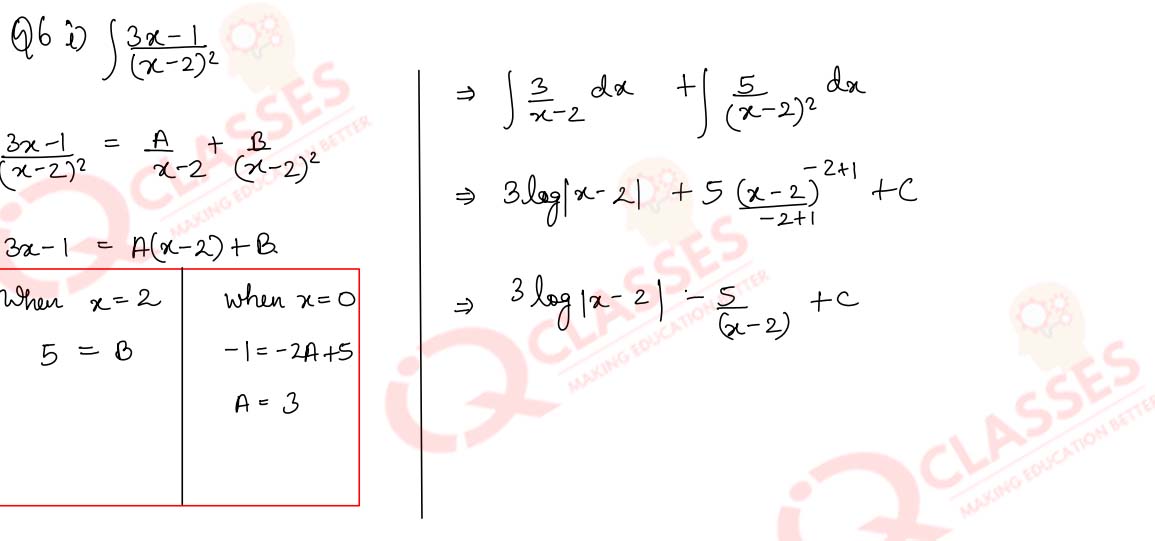 Q6 i) ∫ (3x-1)/(x-2)²
(3x-1)/(x-2)² = A/(x-2) + B/(x-2)²
3x-1 = A(x-2)+B
When x=2
5 = B
when x=0
-1=-2A+5
A = 3
⇒ ∫ 3/(x-2) dx + ∫ 5/(x-2)² dx
⇒ 3log|x-2| + 5 (x-2)^(-2+1)/(-2+1) + C
⇒ 3log|x-2| - 5/(x-2) + C
CLASSES
MAKING EDUCATION BETTER
CLASSES
MAKING EDUCATION BETTER
CLASSES
MAKING EDUCATION BETTER